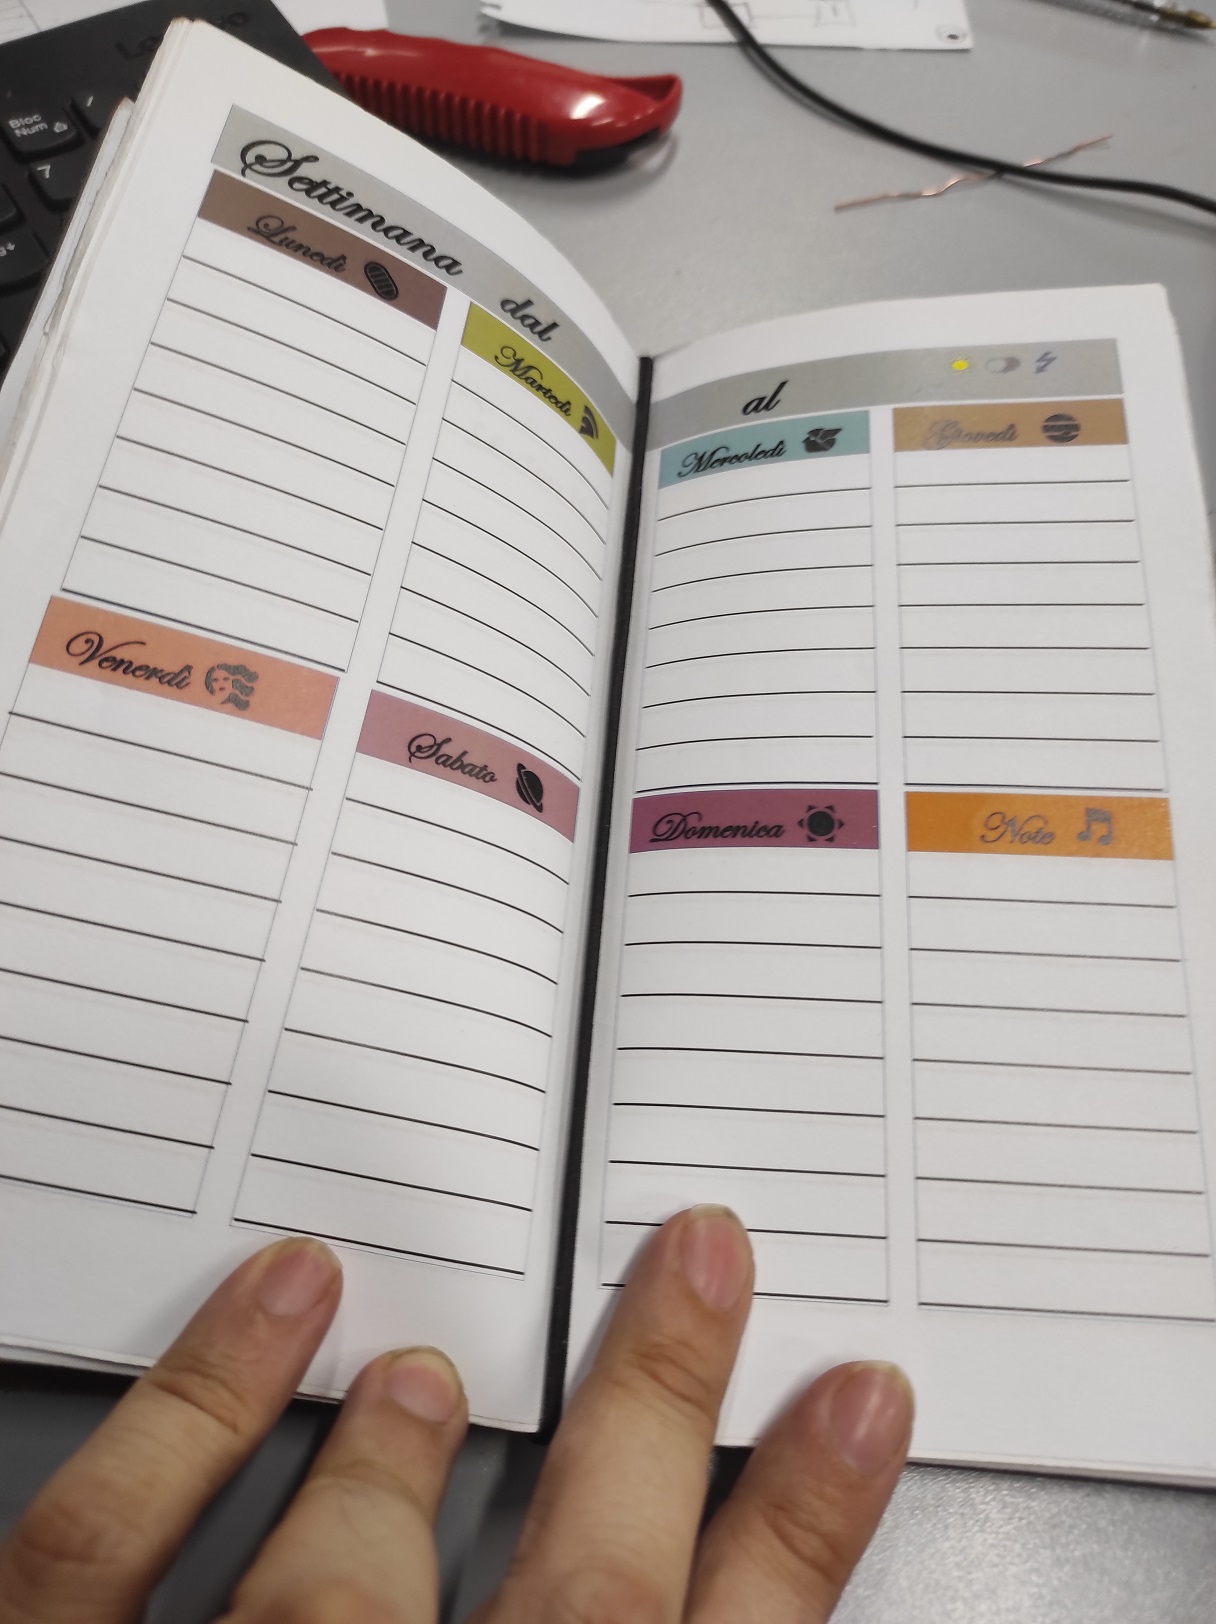 Lenovo
Bloc
Num
7
Settimana dal
al
Lunedì
Martedì
Mercoledì
Giovedì
Venerdì
Sabato
Domenica
Note